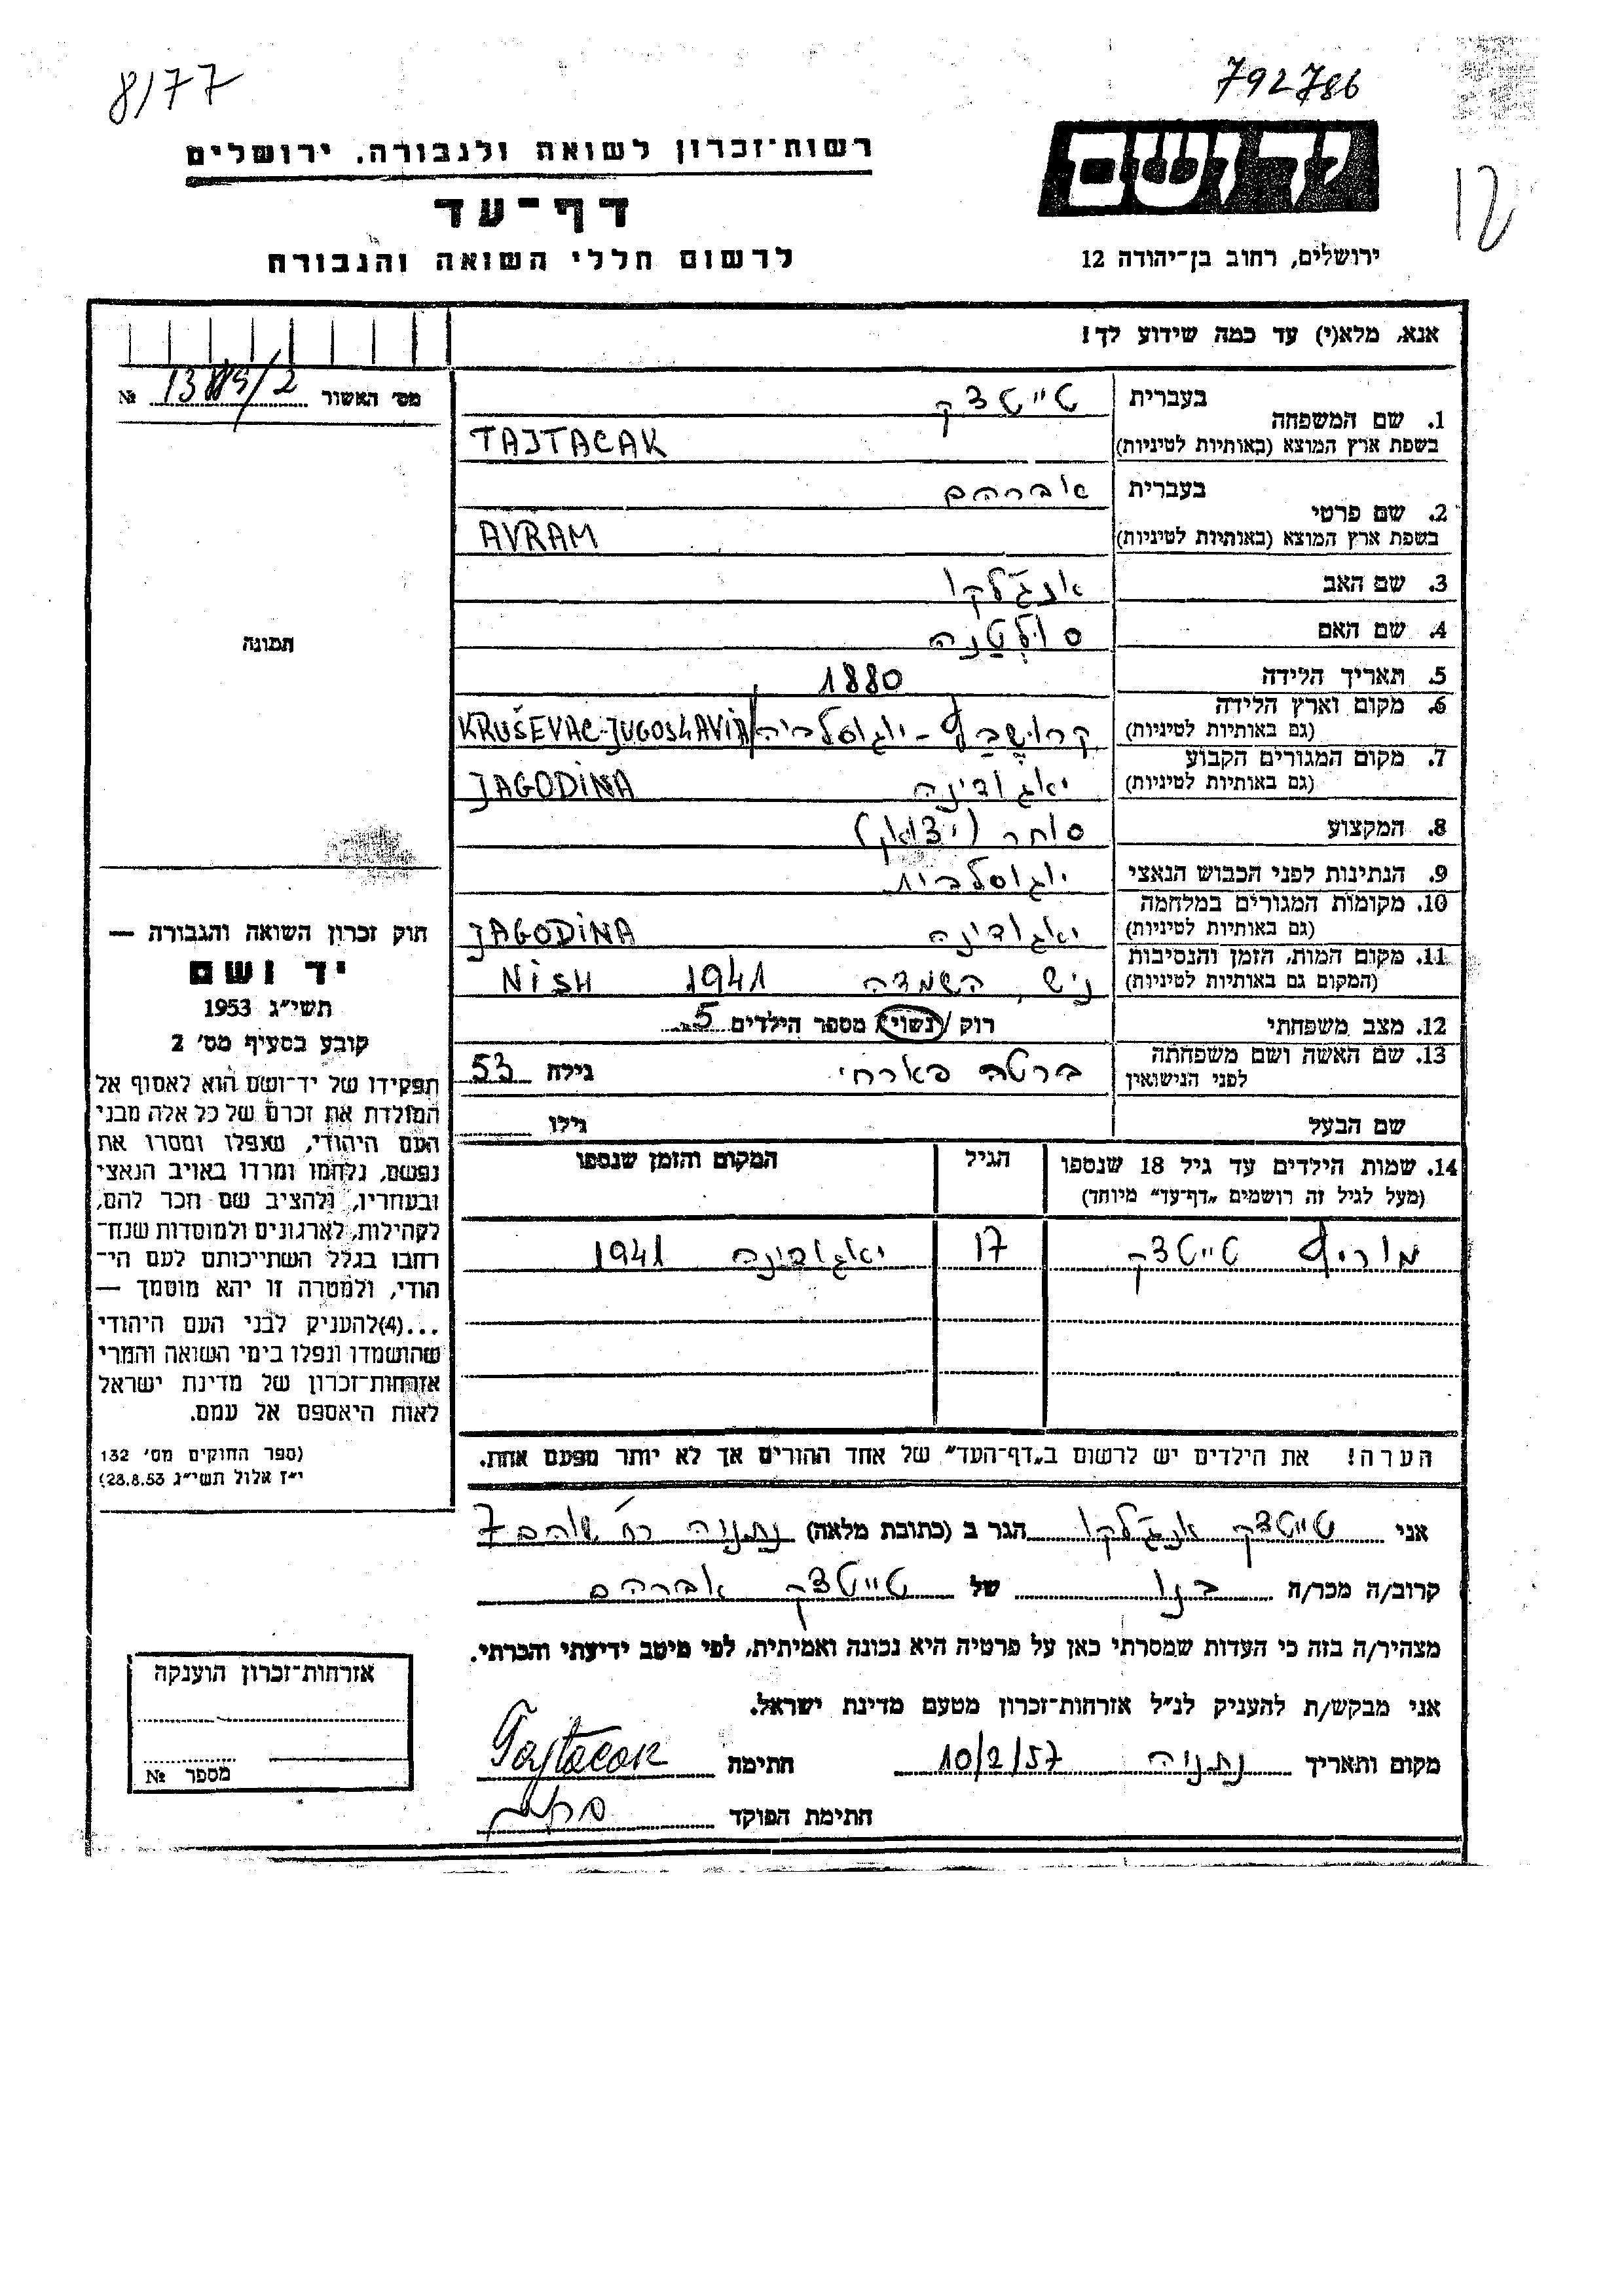 8/77
792786
12
יד ושם
רשות־זכרון לשואה ולגבורה, ירושלים
דף־עד
לרשום חללי השואה והגבורה
ירושלים, רחוב בן־יהודה 12
אנא, מלא(י) עד כמה שידוע לך!
מס' האשור
№
1. שם המשפחה
בעברית טייטצק
בשפת ארץ המוצא (באותיות לטיניות) TAJTACAK
2. שם פרטי
בעברית אברהם
בשפת ארץ המוצא (באותיות לטיניות) AVRAM
3. שם האב אנג'לקו
4. שם האם סולטנה
5. תאריך הלידה 1880
6. מקום וארץ הלידה
(גם באותיות לטיניות) קרושבץ - יוגוסלביה KRUŠEVAC-JUGOSLAVIA
7. מקום המגורים הקבוע
(גם באותיות לטיניות) יאגודינה JAGODINA
8. המקצוע סוחר (יצואן)
9. הנתינות לפני הכבוש הנאצי יוגוסלבית
10. מקומות המגורים במלחמה
(גם באותיות לטיניות) יאגודינה JAGODINA
11. מקום המות, הזמן והנסיבות
(המקום גם באותיות לטיניות) ניש, השמדה 1941 NISH
12. מצב משפחתי רוק / נשוי / מספר הילדים 5
13. שם האשה ושם משפחתה
לפני הנישואין ברטה פארחי גילה 53
שם הבעל גילו
14. שמות הילדים עד גיל 18 שנספו
(מעל לגיל זה רושמים „דף־עד" מיוחד)
הגיל
המקום והזמן שנספו
מוריץ טייטצק 17 יאגודינה 1941
הערה! את הילדים יש לרשום ב„דף־העד" של אחד ההורים אך לא יותר מפעם אחת.
תמונה
חוק זכרון השואה והגבורה —
יד ושם
תשי"ג 1953
קובע בסעיף מס' 2
תפקידו של יד־ושם הוא לאסוף אל
המולדת את זכרם של כל אלה מבני
העם היהודי, שנפלו ומסרו את
נפשם, נלחמו ומרדו באויב הנאצי
ובעוזריו, ולהציב שם וזכר להם,
לקהילות, לארגונים ולמוסדות שנח־
רחבו בגלל השתייכותם לעם הי־
הודי, ולמטרה זו יהא מוסמך —
...(4)להעניק לבני העם היהודי
שהושמדו ונפלו בימי השואה והמרי
אזרחות־זכרון של מדינת ישראל
לאות היאספם אל עמם.
(ספר החוקים מס' 132
י"ז אלול תשי"ג 28.8.53)
אני טייטצק אנג'לקו הגר ב (כתובת מלאה) נתניה רח' שוהם 7
קרוב/ה מכר/ה בנו של טייטצק אברהם
מצהיר/ה בזה כי העדות שמסרתי כאן על פרטיה היא נכונה ואמיתית, לפי מיטב ידיעתי והכרתי.
אני מבקש/ת להעניק לנ"ל אזרחות־זכרון מטעם מדינת ישראל.
מקום ותאריך נתניה 10/2/57 חתימה Tajtacak
חתימת הפוקד
אזרחות־זכרון הוענקה
מספר №